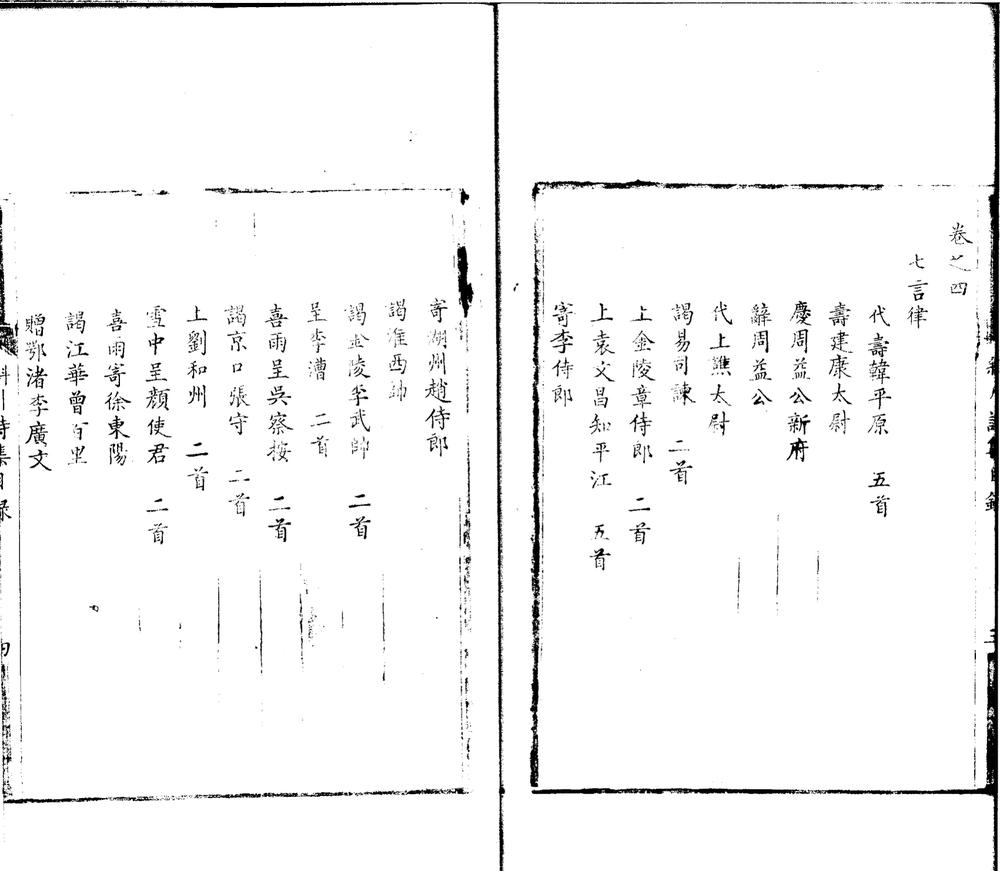 卷之四
七言律
代壽韓平原 五首
壽建康太尉
慶周益公新府
辭周益公
代上譙太尉
謁易司諫 二首
上金陵章侍郎 二首
上袁文昌知平江 五首
寄李侍郎
寄湖州趙侍郎
謁淮西帥
謁金陵李武帥 二首
呈李漕 二首
喜雨呈吳察按 二首
謁京口張守 二首
上劉和州 二首
雪中呈顏使君 二首
喜雨寄徐東陽
謁江華曾百里
贈鄂渚李廣文
川詩集目録